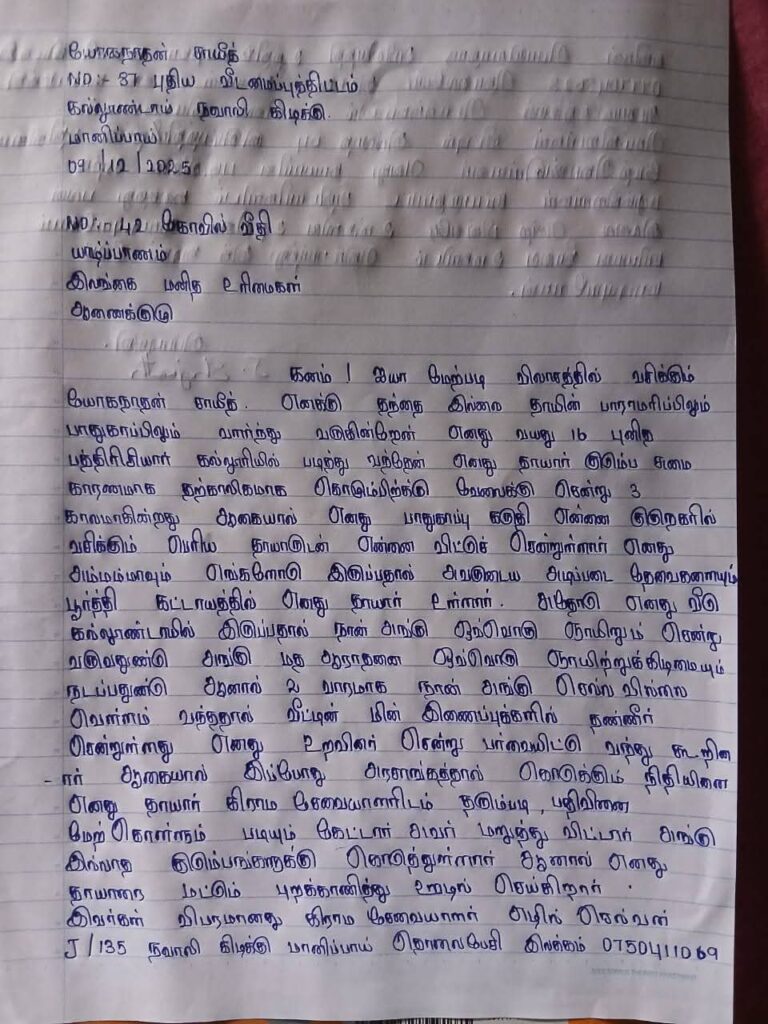 யோகநாதன் சாயீத்
NO:- 37 புதிய வீடமைப்புத்திட்டம்
கல்லுண்டாய் நவாலி கிழக்கு.
மானிப்பாய்
09/12/2025
NO:- 42 கோவில் வீதி
யாழ்ப்பாணம்
இலங்கை மனித உரிமைகள்
ஆணைக்குழு
கனம் ! ஐயா மேற்படி விலாசத்தில் வசிக்கும்
யோகநாதன் சாயீத். எனக்கு தந்தை இல்லை தாயின் பாராமரிப்பிலும்
பாதுகாப்பிலும் வாழ்ந்து வருகின்றேன் எனது வயது 16 புனித
பத்திரிசியார் கல்லூரியில் படித்து வந்தேன் எனது தாயார் குடும்ப சுமை
காரணமாக தற்காலிகமாக கொழும்பிற்கு வேலைக்கு சென்று 3
காலமாகின்றது ஆகையால் எனது பாதுகாப்பு கருதி என்னை குருநகரில்
வசிக்கும் பெரிய தாயாடுன் என்னை விட்டுச் சென்றுள்ளார் எனது
அம்மம்மாவும் எங்களோடு இருப்பதால் அவருடைய அடிப்படை தேவைகளையும்
பூர்த்தி கட்டாயத்தில் எனது தாயார் உள்ளார். அதோடு எனது வீடு
கல்லூண்டாயில் இருப்பதால் நான் அங்கு ஒவ்வொரு ஞாயிறும் சென்று
வருவதுண்டு அங்கு மத ஆராதனை ஒவ்வொரு ஞாயிற்றுக்கிழமையும்
நடப்பதுண்டு ஆனால் 2 வாரமாக நான் அங்கு செல்ல வில்லை
வெள்ளம் வந்ததால் வீட்டின் மின் இணைப்புக்களில் தண்ணீர்
சென்றுள்ளது எனது உறவினர் சென்று பர்வையிட்டு வந்து கூறின
-ார் ஆகையால் இப்போது அரசாங்கத்தால் கொடுக்கும் நிதியினை
எனது தாயார் கிராம சேவையாளரிடம் தரும்படி, பதிவினை
மேற்கொள்ளும் படியும் கேட்டார் அவர் மறுத்து விட்டார் அங்கு
இல்லாத குடும்பங்களுக்கு கொடுத்துள்ளார் ஆனால் எனது
தாயாரை மட்டும் புறக்கணித்து ஊழல் செய்கிறார்.
இவர்கள் விபரமானது கிராம சேவையாளர் எழில் செல்வன்
J/135 நவாலி கிழக்கு மானிப்பாய் தொலைபேசி இலக்கம் 0750411069